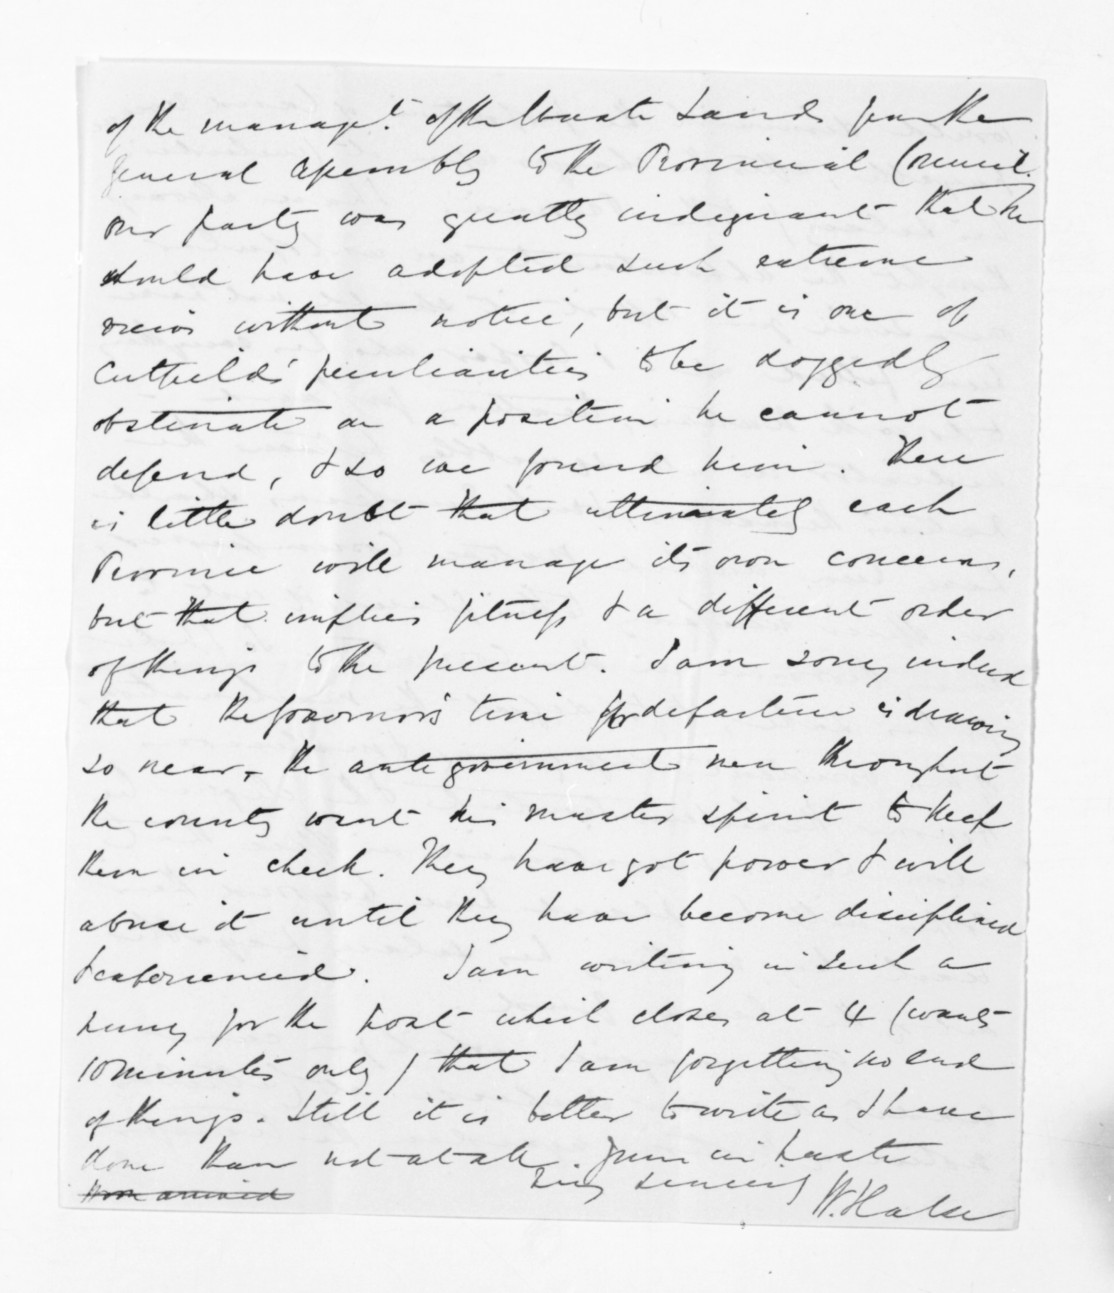 of the managt. of the Waste Lands from the
General Assembly to the Provincial Council.
our party was greatly indignant that he
should have adopted such extreme
views without notice, but it is one of
Cutfield's peculiarities to be doggedly
obstinate on a position he cannot
defend, & so we found him. There
is little doubt that ultimately each
Province will manage its own concerns,
but that implies fitness & a different order
of things to the present. I am sorry indeed
that the Governor's time for departure is drawing
so near, the anti government men throughout
the country want his master spirit to keep
them in check. They have got power & will
abuse it until they have become disciplined
& experienced. I am writing in such a
hurry for the post which closes at 4 (wants
10 minutes only) that I am forgetting no end
of things. Still it is better to write as I have
done than not at all. Yours in haste
Very sincerely
W. Halse